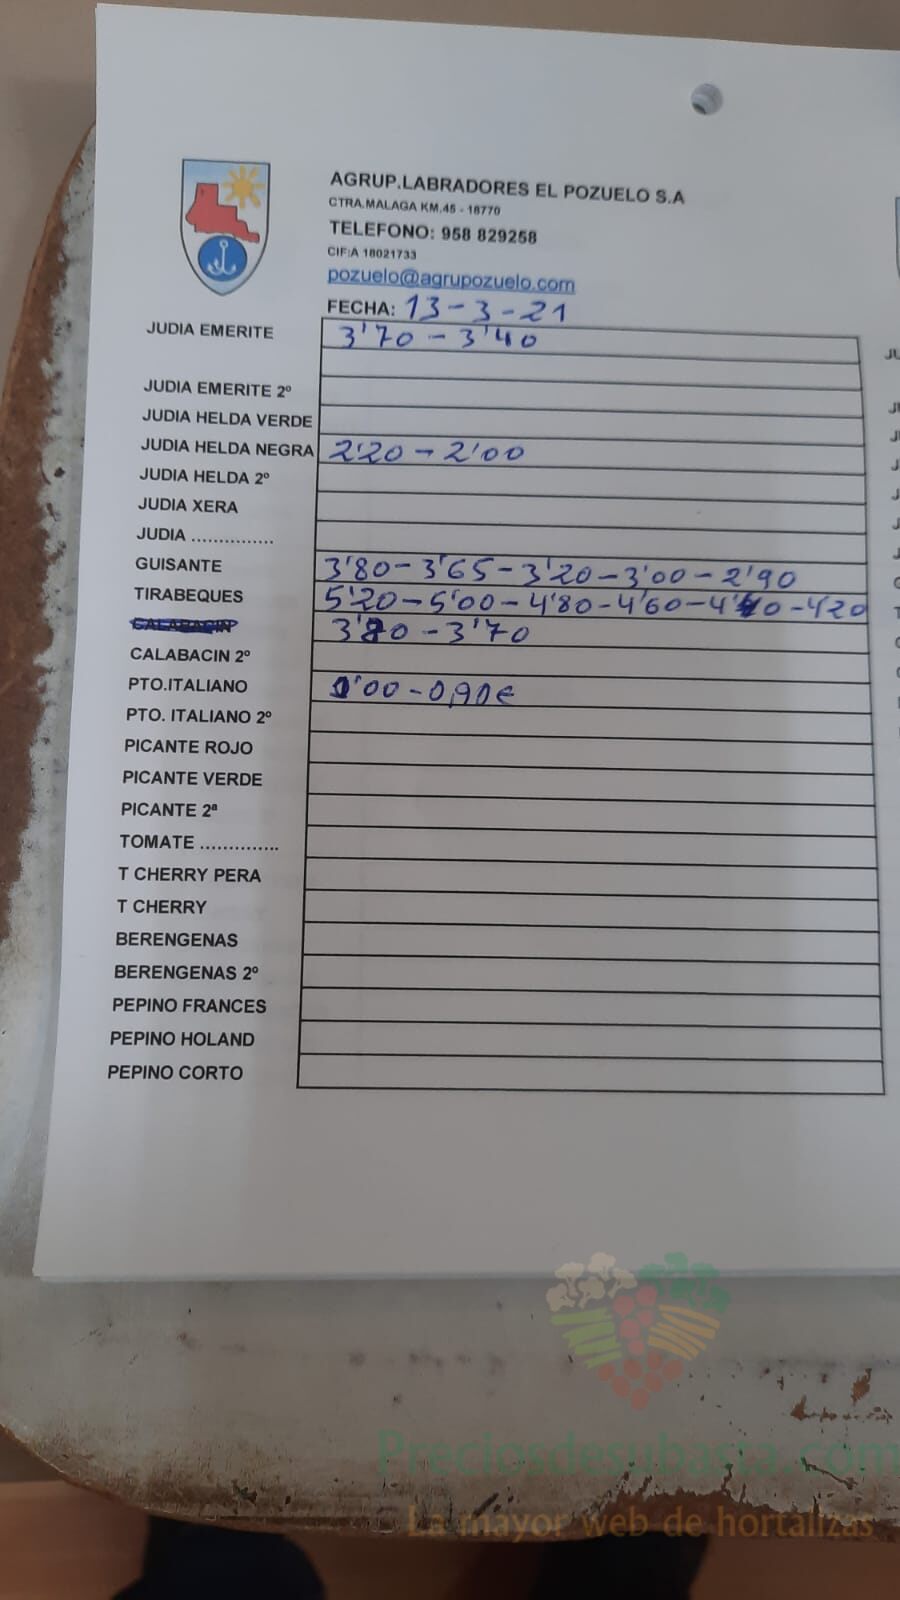 AGRUP.LABRADORES EL POZUELO S.A
CTRA.MALAGA KM.45 - 18770
TELEFONO: 958 829258
CIF:A 18021733
pozuelo@agrupozuelo.com
FECHA: 13-3-21
JUDIA EMERITE 3'70 - 3'40
JUDIA EMERITE 2º
JUDIA HELDA VERDE
JUDIA HELDA NEGRA 2'20 - 2'00
JUDIA HELDA 2º
JUDIA XERA
JUDIA ...............
GUISANTE 3'80 - 3'65 - 3'20 - 3'00 - 2'90
TIRABEQUES 5'20 - 5'00 - 4'80 - 4'60 - 4'40 - 4'20
CALABACIN 3'80 - 3'70
CALABACIN 2º
PTO.ITALIANO 1'00 - 0,90€
PTO. ITALIANO 2º
PICANTE ROJO
PICANTE VERDE
PICANTE 2ª
TOMATE ..............
T CHERRY PERA
T CHERRY
BERENGENAS
BERENGENAS 2º
PEPINO FRANCES
PEPINO HOLAND
PEPINO CORTO
Preciosdesubasta.com
La mayor web de hortalizas